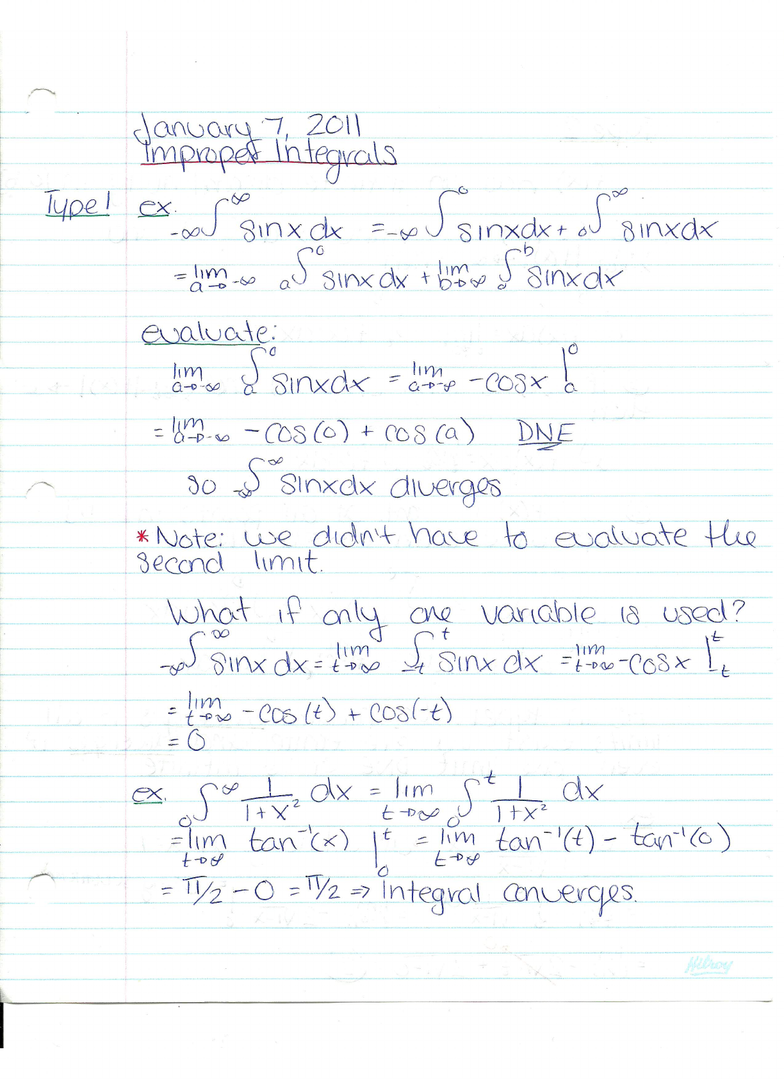 January 7, 2011
Improper Integrals
Type 1 ex. -∞∫^∞ sinx dx = -∞∫^0 sinxdx + 0∫^∞ sinxdx
= lim a→-∞ a∫^0 sinx dx + lim b→∞ 0∫^b sinxdx
evaluate:
lim a→-∞ a∫^0 sinxdx = lim a→-∞ -cosx |^0_a
= lim a→-∞ -cos(0) + cos(a) DNE
so -∞∫^∞ sinxdx diverges
* Note: we didn't have to evaluate the
second limit.
What if only one variable is used?
-∞∫^∞ sinx dx = lim t→∞ -t∫^t sinx dx = lim t→∞ -cosx |^t_-t
= lim t→∞ -cos(t) + cos(-t)
= 0
ex. 0∫^∞ 1/1+x² dx = lim t→∞ 0∫^t 1/1+x² dx
= lim t→∞ tan⁻¹(x) |^t_0 = lim t→∞ tan⁻¹(t) - tan⁻¹(0)
= π/2 - 0 = π/2 ⇒ integral converges.
Hilroy